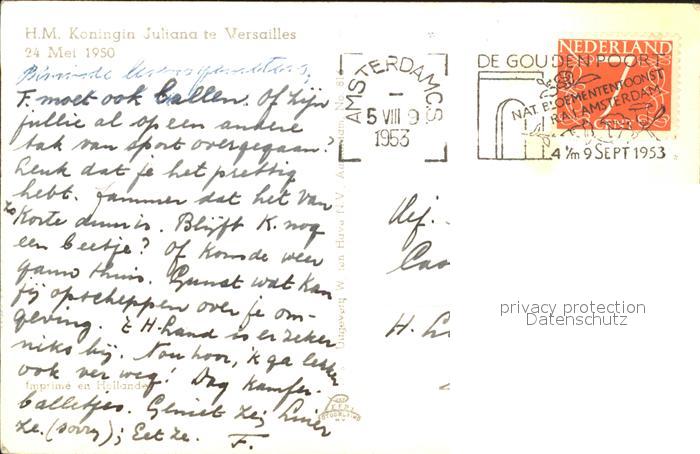 H.M. Koningin Juliana te Versailles
24 Mei 1950
F. moet ook ballen. Of zijn
jullie al op een andere
tak van sport overgegaan?
Denk dat je het prettig
hebt. Jammer dat het van
zo
korte duur is. Blijft K. nog
een beetje? Of komde weer
gauw thuis. Gunst wat kan
jij opscheppen over je om-
geving. Z H.Land is er zeker
niks bij. Nou hoor, 'k ga lekker
ook ver weg! Dag Kamfer-
balletjes. Geniet ze,
ze. (sorry); Eet ze. F.
Imprimé en Hollande
Uitgeverij W. ten Have N.V. Amsterdam No. 8
AMSTERDAM CS
5 VIII 9
1953
DE GOUDEN POORT
NAT. BLOEMENTENTOONST.
RAI AMSTERDAM
4 t/m 9 SEPT 1953
NEDERLAND
CENT
Mej.
H. L
privacy protection
Datenschutz